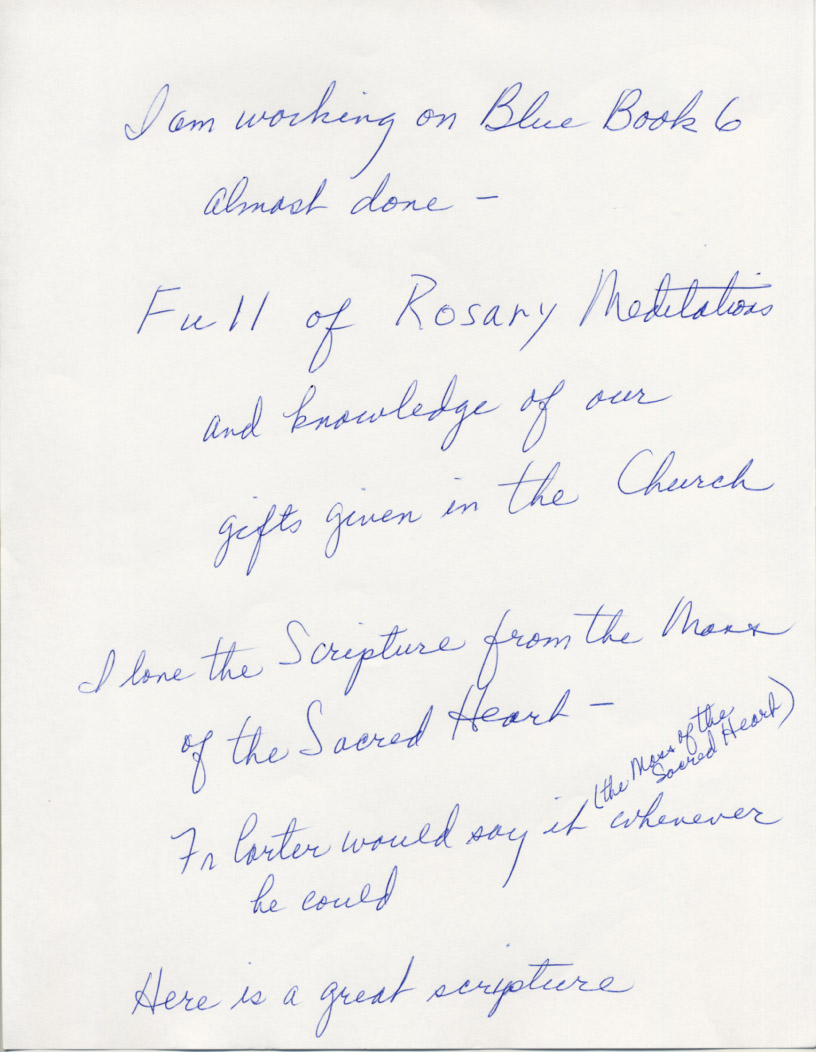 I am working on Blue Book 6
almost done –
Full of Rosary Meditations
and knowledge of our
gifts given in the Church
I love the Scripture from the Mass
of the Sacred Heart –
(the Mass of the
Sacred Heart)
Fr Carter would say it whenever
he could
Here is a great scripture